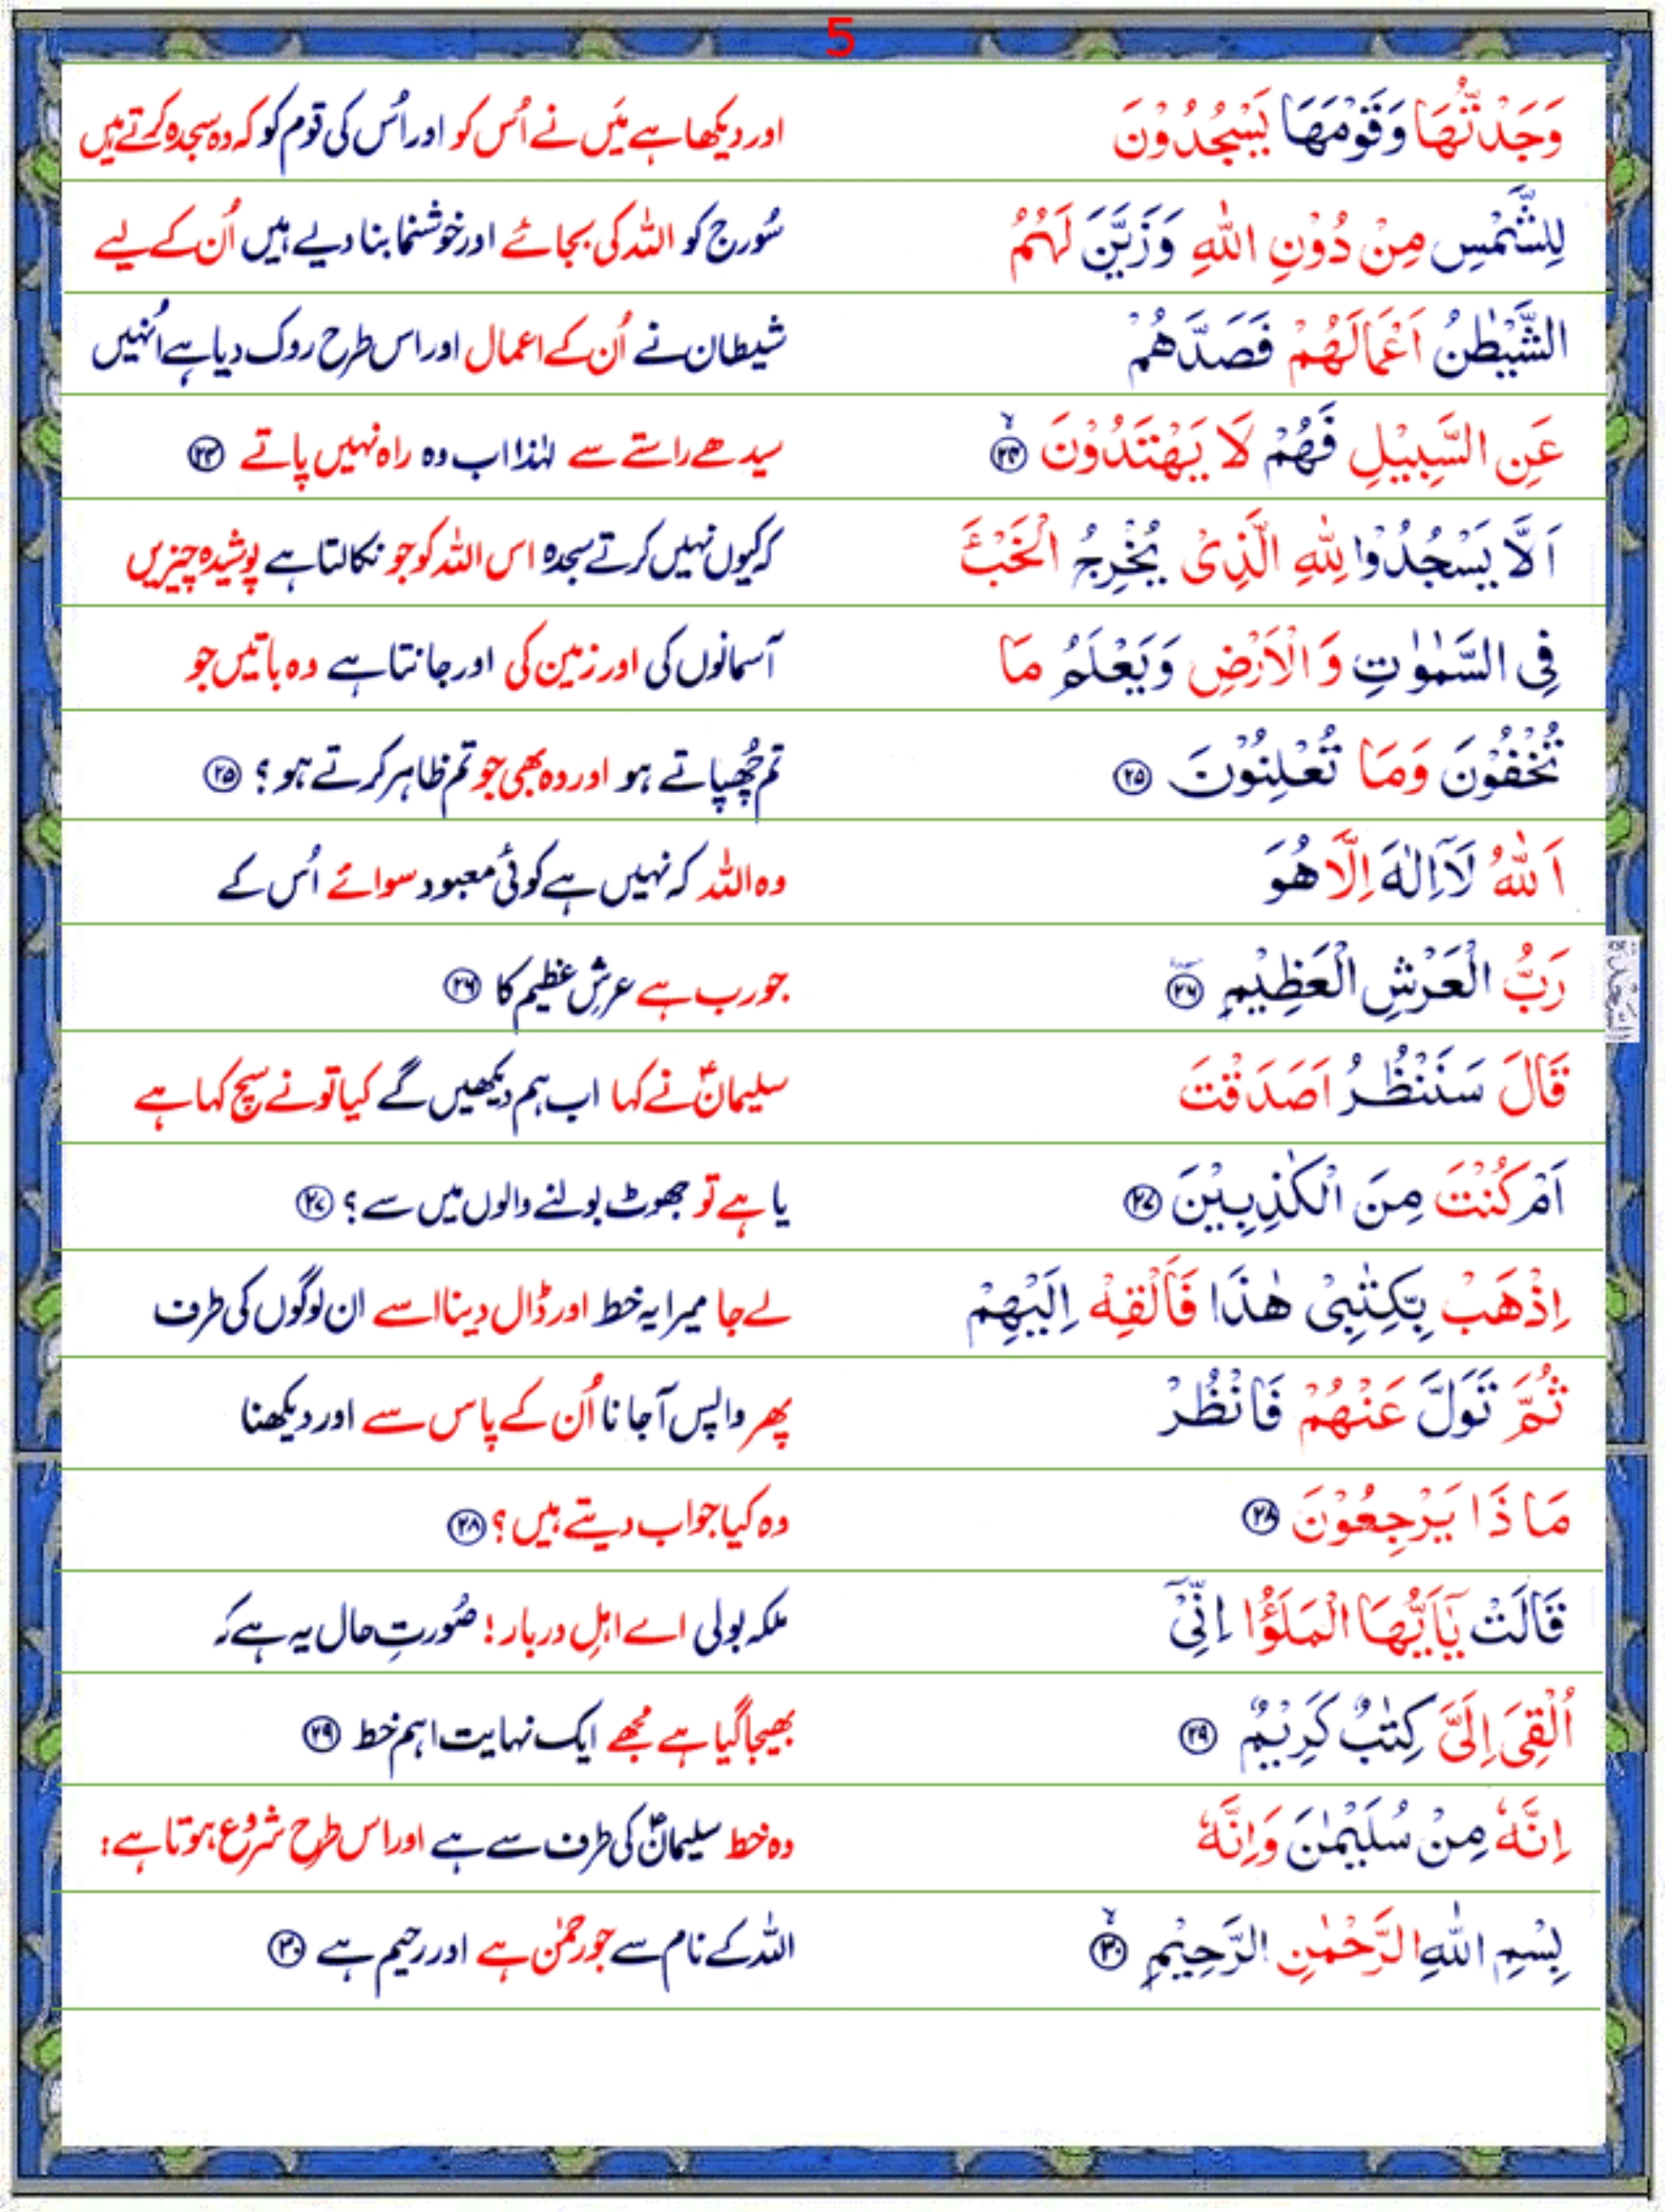 5
وَجَدْتُّهَا وَقَوْمَهَا يَسْجُدُوْنَ اور دیکھا ہے میَں نے اُس کو اور اُس کی قوم کو کہ وہ سجدہ کرتے ہیں
لِلشَّمْسِ مِنْ دُوْنِ اللّٰهِ وَزَيَّنَ لَهُمُ سُورج کو اللہ کی بجائے اور خوشنما بنا دیے ہیں اُن کے لیے
الشَّيْطٰنُ اَعْمَالَهُمْ فَصَدَّهُمْ شیطان نے اُن کے اعمال اور اس طرح روک دیا ہے اُنہیں
عَنِ السَّبِيْلِ فَهُمْ لَا يَهْتَدُوْنَ ۙ‏﴿۲۴﴾ سیدھے راستے سے لہٰذا اب وہ راہ نہیں پاتے ﴿۲۴﴾
اَلَّا يَسْجُدُوْا لِلّٰهِ الَّذِىْ يُخْرِجُ الْخَبْءَ کہ کیوں نہیں کرتے سجدہ اس اللہ کو جو نکالتا ہے پوشیدہ چیزیں
فِى السَّمٰوٰتِ وَالْاَرْضِ وَيَعْلَمُ مَا آسمانوں کی اور زمین کی اور جانتا ہے وہ باتیں جو
تُخْفُوْنَ وَمَا تُعْلِنُوْنَ ﴿۲۵﴾ تم چُھپاتے ہو اور وہ بھی جو تم ظاہر کرتے ہو؟ ﴿۲۵﴾
اَللّٰهُ لَاۤ اِلٰهَ اِلَّا هُوَ وہ اللہ کہ نہیں ہے کوئی معبود سوائے اُس کے
رَبُّ الْعَرْشِ الْعَظِيْمِ ﴿۲۶﴾ جو رب ہے عرشِ عظیم کا ﴿۲۶﴾
السجدة
قَالَ سَنَنْظُرُ اَصَدَقْتَ سلیمانؑ نے کہا اب ہم دیکھیں گے کیا تو نے سچ کہا ہے
اَمْ كُنْتَ مِنَ الْكٰذِبِيْنَ ﴿۲۷﴾ یا ہے تو جھوٹ بولنے والوں میں سے؟ ﴿۲۷﴾
اِذْهَبْ بِّكِتٰبِىْ هٰذَا فَاَلْقِهْ اِلَيْهِمْ لے جا میرا یہ خط اور ڈال دینا اسے ان لوگوں کی طرف
ثُمَّ تَوَلَّ عَنْهُمْ فَانْظُرْ پھر واپس آجانا اُن کے پاس سے اور دیکھنا
مَاذَا يَرْجِعُوْنَ ﴿۲۸﴾ وہ کیا جواب دیتے ہیں؟ ﴿۲۸﴾
قَالَتْ يٰۤاَيُّهَا الْمَلَؤُا اِنِّىْۤ ملکہ بولی اے اہلِ دربار! صُورتِ حال یہ ہے کہ
اُلْقِىَ اِلَىَّ كِتٰبٌ كَرِيْمٌ ﴿۲۹﴾ بھیجا گیا ہے مجھے ایک نہایت اہم خط ﴿۲۹﴾
اِنَّهٗ مِنْ سُلَيْمٰنَ وَاِنَّهٗ وہ خط سلیمانؑ کی طرف سے ہے اور اس طرح شروع ہوتا ہے:
بِسْمِ اللّٰهِ الرَّحْمٰنِ الرَّحِيْمِ ۙ‏﴿۳۰﴾ اللہ کے نام سے جو رحمٰن ہے اور رحیم ہے ﴿۳۰﴾